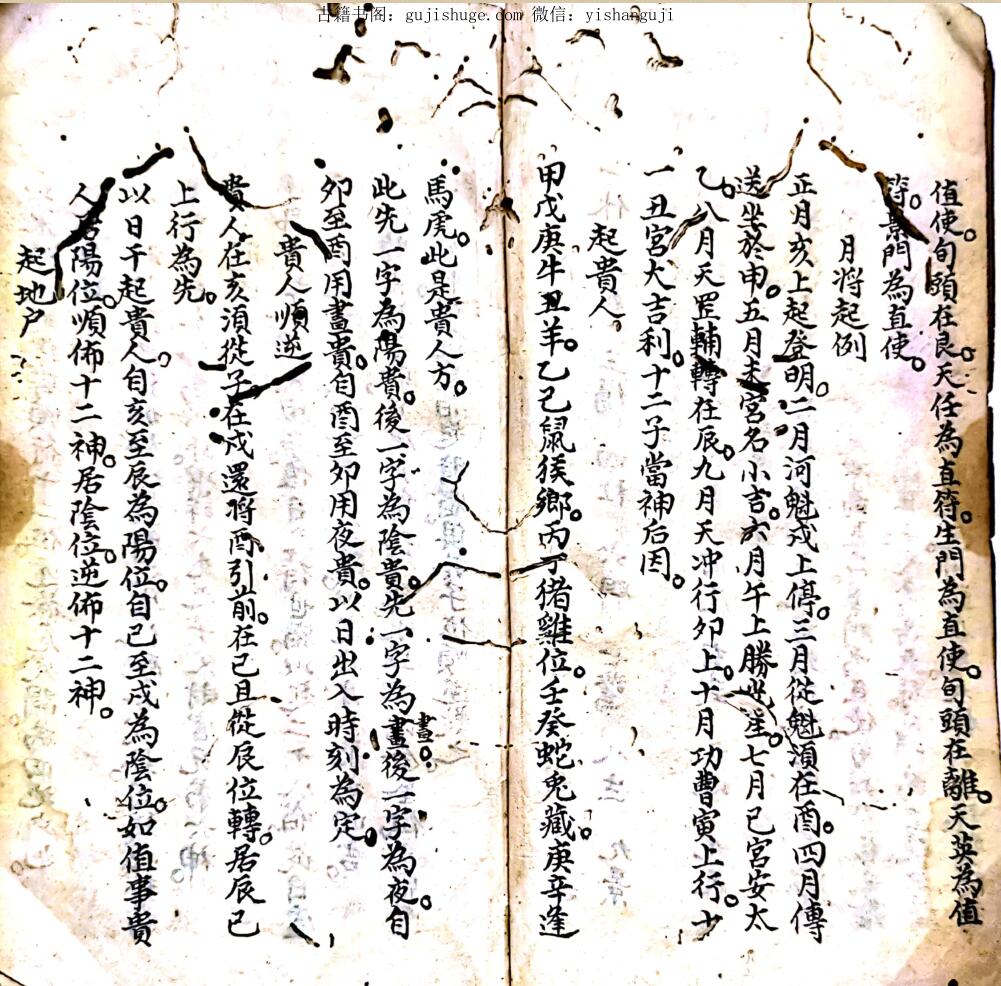 古籍书阁：gujishuge.com 微信：yishanguji
值使。旬頭在艮。天任為直符。生門為直使。旬頭在離。天英為值
符。景門為直使。
月將起例
正月亥上起登明。二月河魁戌上停。三月從魁須在酉。四月傳
送坐於申。五月未宮名小吉。六月午上勝光生。七月巳宮安太
乙。八月天罡輔轉在辰。九月天冲行卯上。十月功曹寅上行。十
一丑宮大吉利。十二子當神后因。
起貴人
甲戊庚牛丑羊。乙己鼠猴鄉。丙丁猪雞位。壬癸蛇兔藏。庚辛逢
馬虎。此是貴人方。
此先一字為陽貴。後一字為陰貴。先一字為晝後一字為夜。自
畫。
卯至酉用晝貴。自酉至卯用夜貴。以日出入時刻為定。
貴人順逆
貴人在亥須從子。在戌還將酉引前。在巳且從辰位轉。居辰巳
上行為先。
以日干起貴人。自亥至辰為陽位。自巳至戌為陰位。如值事貴
人居陽位。順佈十二神。居陰位。逆佈十二神。
起地户